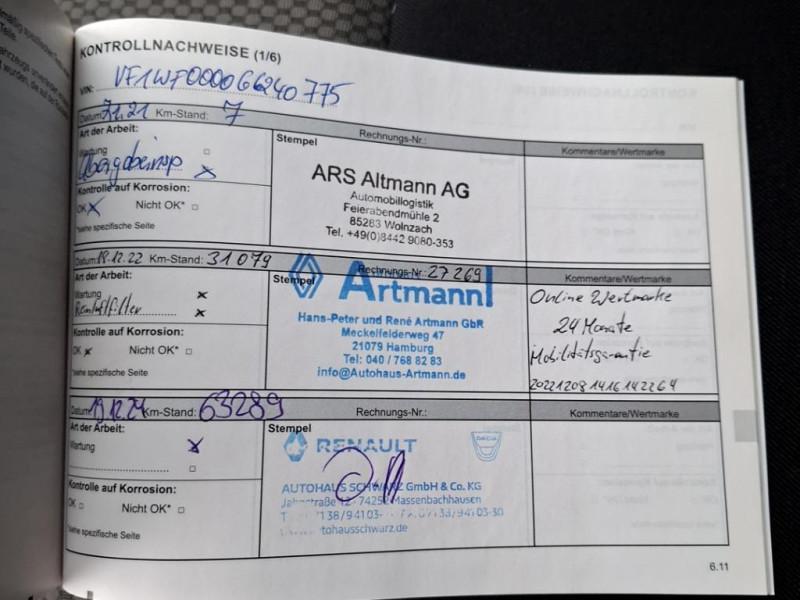 KONTROLLNACHWEISE (1/6)
VIN: VF1WF000066240775
Datum: 7.1.21 Km-Stand: 7
Art der Arbeit:
Wartung
Übergabeinsp x
Kontrolle auf Korrosion:
OK x Nicht OK* □
*siehe spezifische Seite
Stempel
Rechnungs-Nr.:
ARS Altmann AG
Automobillogistik
Feierabendmühle 2
85283 Wolnzach
Tel. +49(0)8442 9080-353
Kommentare/Wertmarke
Datum: 19.12.22 Km-Stand: 31079
Art der Arbeit:
Wartung x
x
Kontrolle auf Korrosion:
OK x Nicht OK* □
*siehe spezifische Seite
Stempel
Rechnungs-Nr.: 27269
Artmann
Hans-Peter und René Artmann GbR
Meckelfelderweg 47
21079 Hamburg
Tel: 040 / 768 82 83
info@Autohaus-Artmann.de
Kommentare/Wertmarke
Online Wertmarke
24 Monate
Mobilitätsgarantie
20221208141614 2264
Datum: 19.12.24 Km-Stand: 63289
Art der Arbeit:
Wartung x
□
Kontrolle auf Korrosion:
OK □ Nicht OK* □
*siehe spezifische Seite
Stempel
Rechnungs-Nr.:
RENAULT
DACIA
AUTOHAUS SCHWARZ GmbH & Co. KG
12 - 74252 Massenbachhausen
138/94103-
138/94103-30
tohausschwarz.de
Kommentare/Wertmarke
6.11